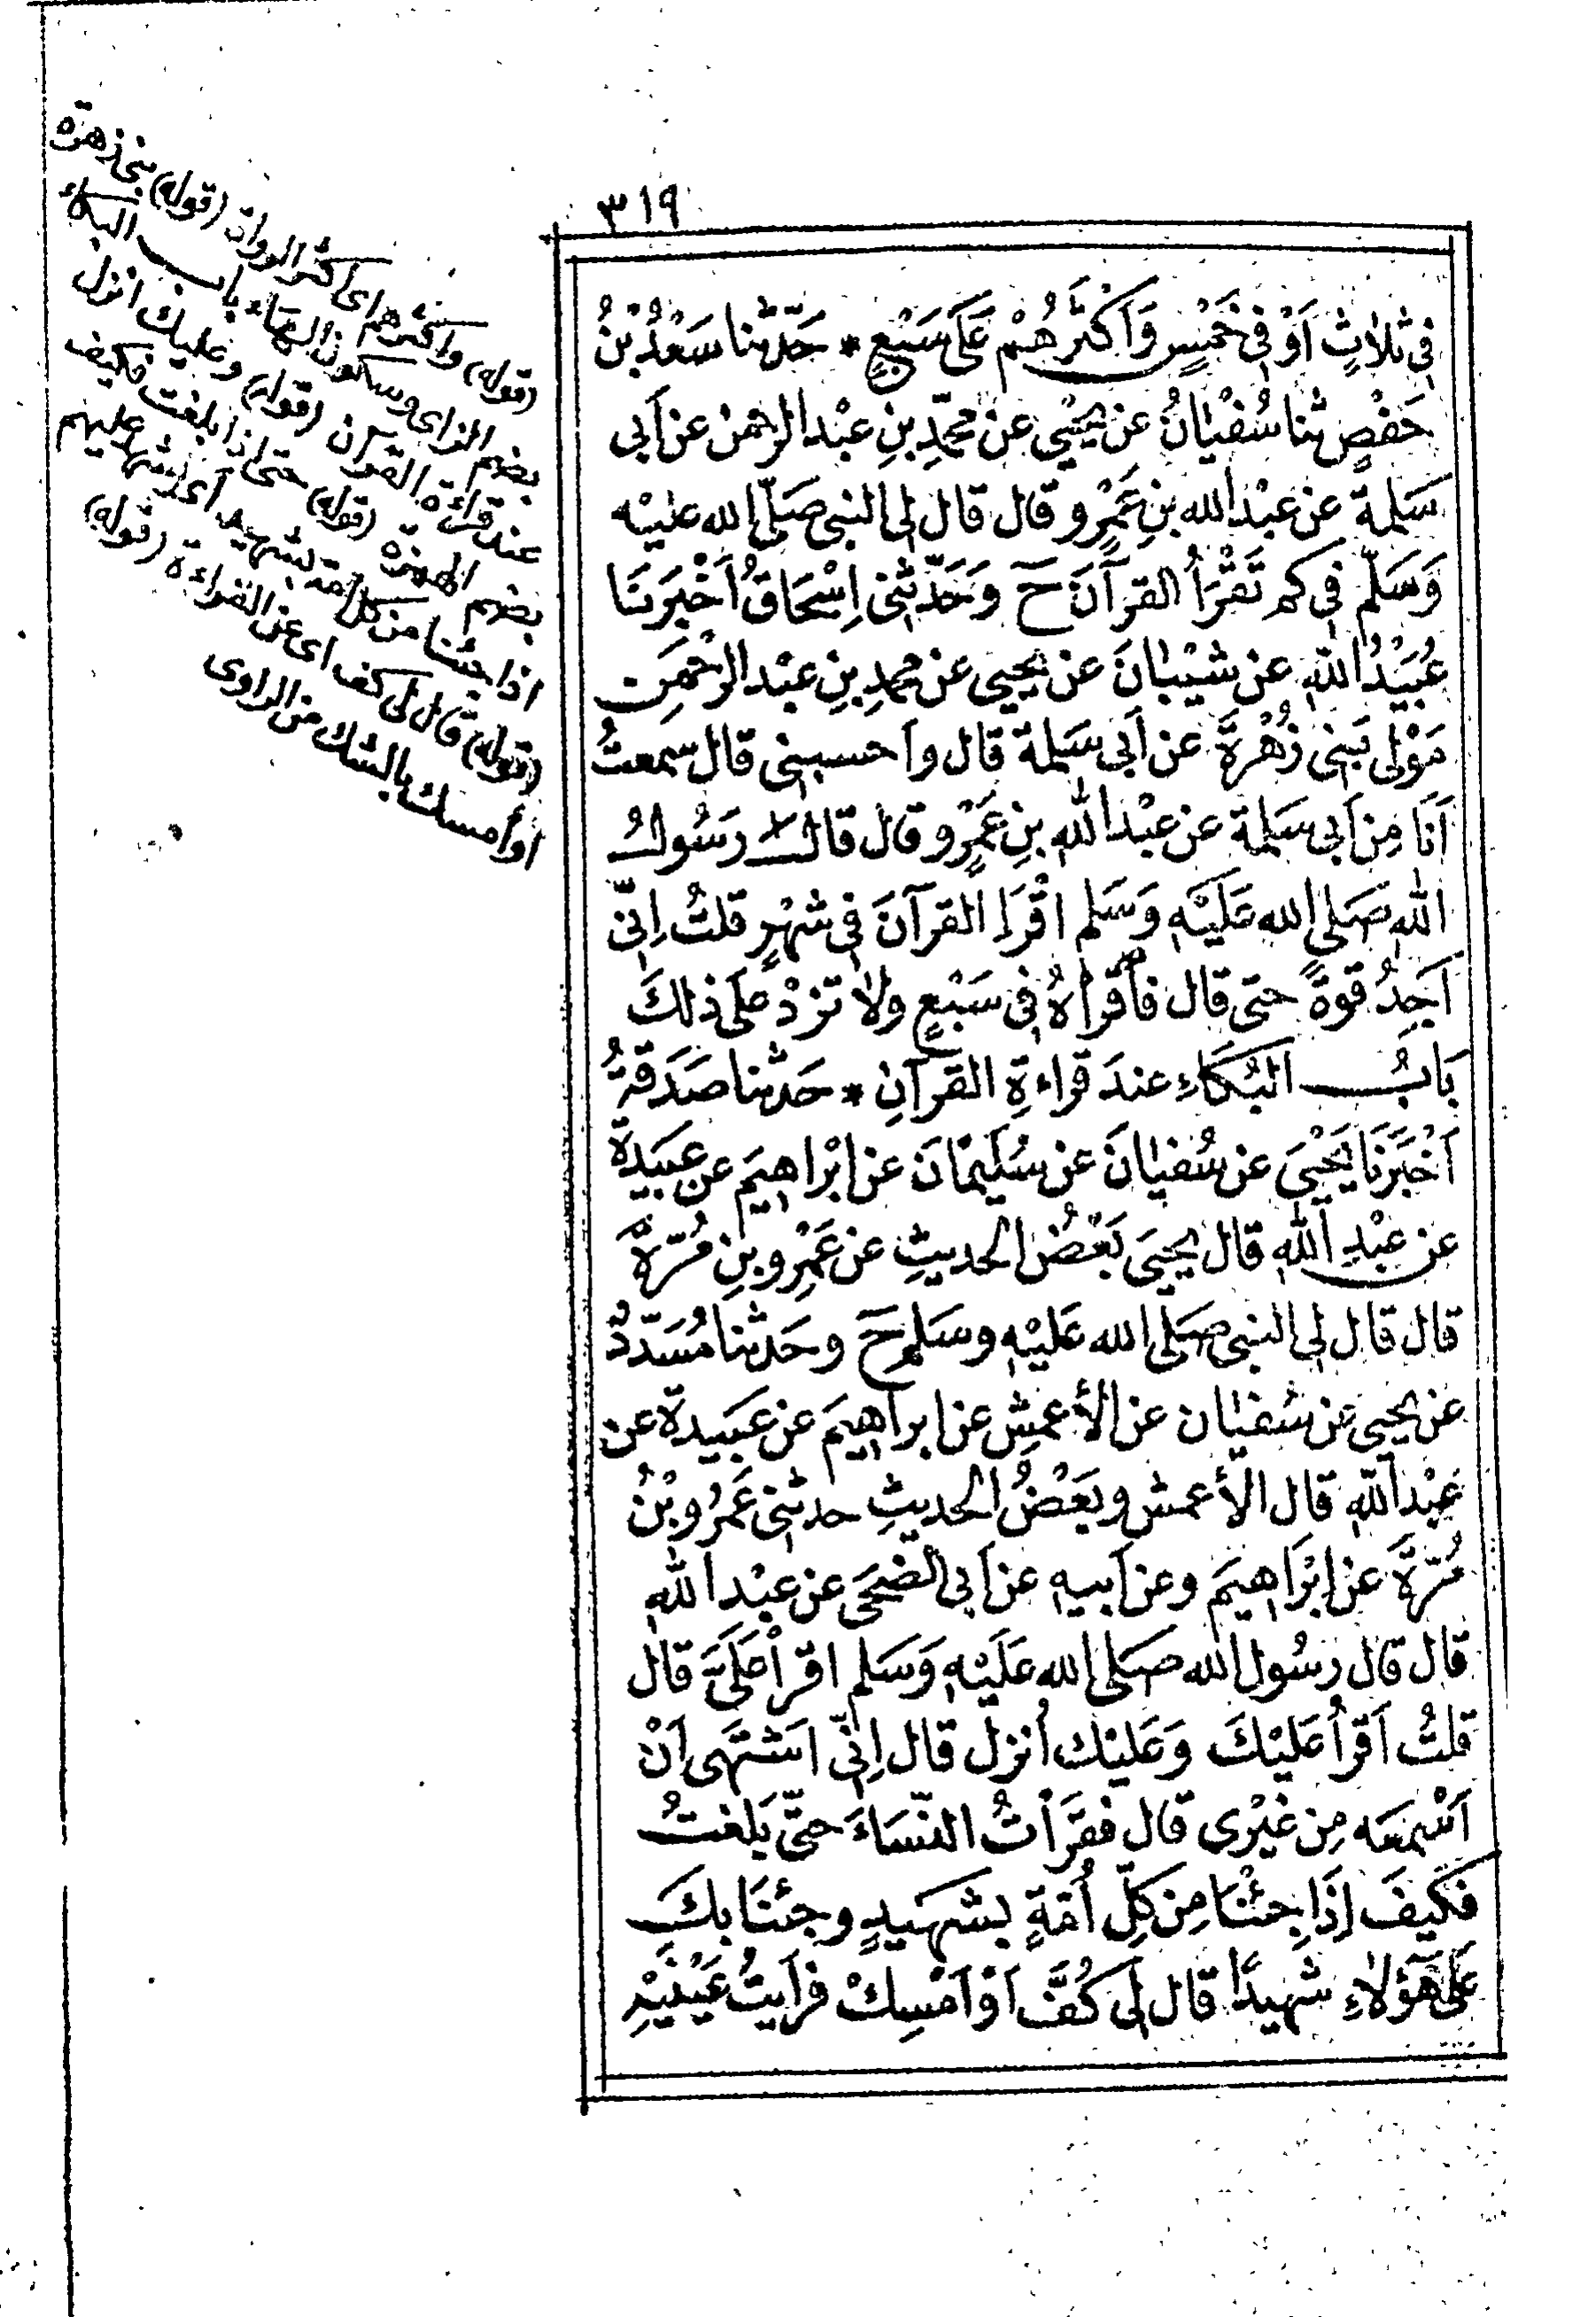 ٣١٩
فِى ثَلاثٍ أَوْ فِى خَمْسٍ وَأَكْثَرُهُمْ عَلَى سَبْعٍ * حَدّثنا سَعْدُ بْنُ
حَفْصٍ ثنا سُفْيَانُ عن يَحْيٰى عن محمّدِ بنِ عبْدالرحمن عن أبى
سَلمة عن عبْدالله بنِ عَمْرٍو قال قال لى النبى صَلّى الله عليْه
وَسَلّم فى كم تَقْرَأُ القرآنَ حَ وَحَدّثنى اِسْحَاقُ أخْبَرنَا
عُبَيْدُ اللهِ عن شيْبَانَ عن يحيى عن محمدِ بنِ عبْدالرَّحمٰن
مَوْلى بَنِى زُهْرَةَ عن أبى سَلمة قال وأحسبنى قال سمعتُ
أَنَا مِن أبى سَلمة عن عبْداللهِ بنِ عَمْرٍو قال قالَ رَسُولُ
اللهِ صَلى الله عَليْهِ وَسَلم اقْرَإِ القرآنَ فِى شهْرٍ قلتُ اِنّى
أجِدُ قوةً حتى قال فأقرأهُ فِى سَبْعٍ ولا تزدْ عَلَى ذلكَ
بَابُ البُكَاءِ عندَ قراءةِ القرآنِ * حَدثنا صَدَقةُ
أخْبَرَنَا يَحْيَى عن سُفيَانَ عن سُليْمَانَ عن ابْراهِيَم عن عبَيدة
عن عبْدِ اللهِ قال يحيَى بَعْضُ الحديثِ عن عَمْرِو بنِ مُرّةَ
قال قال لى النبى صَلى الله عَليْهِ وسَلم حَ وحَدثنا مُسَدّدٌ
عن يحيى عن سُفيَان عن الأعمشِ عن ابراهيَم عن عبَيدة عن
عبْداللهِ قال الأعمش وبَعْضُ الحديثِ حدثنى عَمْرُو بْنُ
مُرّةَ عن اِبْرَاهيَم وعن أبيهِ عن أبى الضحَى عن عبْداللهِ
قال قال رسُول الله صَلى الله عَليْهِ وَسَلم اقرأ عَلَىَّ قال
قلتُ أقرأُ عَليْكَ وَعَليْك أُنزل قال اِنّى أشتَهى أنْ
أسْمعَه مِن غيْرى قال فقَرَأتُ النّسَاءَ حتّى بَلغتُ
فكَيفَ إذَا جئْنَا مِن كلّ أُمّةٍ بشَهيدٍ وجئنَا بكَ
عَلى هَؤلاءِ شهيدًا قال لى كُفَّ أوْ أمْسِكْ فرَأيتُ عيْنيْهِ
(قوله) واكثرهم اى اكثر الرواة (قوله) بنى زهرة
بضم الزاى وسكون الهاء باب البكاء
عند قراءة القرآن (قوله) وعليك انزل
بضم الهمزة (قوله) حتى اذا بلغت فكيف
اذا جئنا من كل امة بشهيد اى يشهد عليهم
(قوله) قال لى كف اى عن القراءة (قوله)
او أمسك بالشك من الراوى